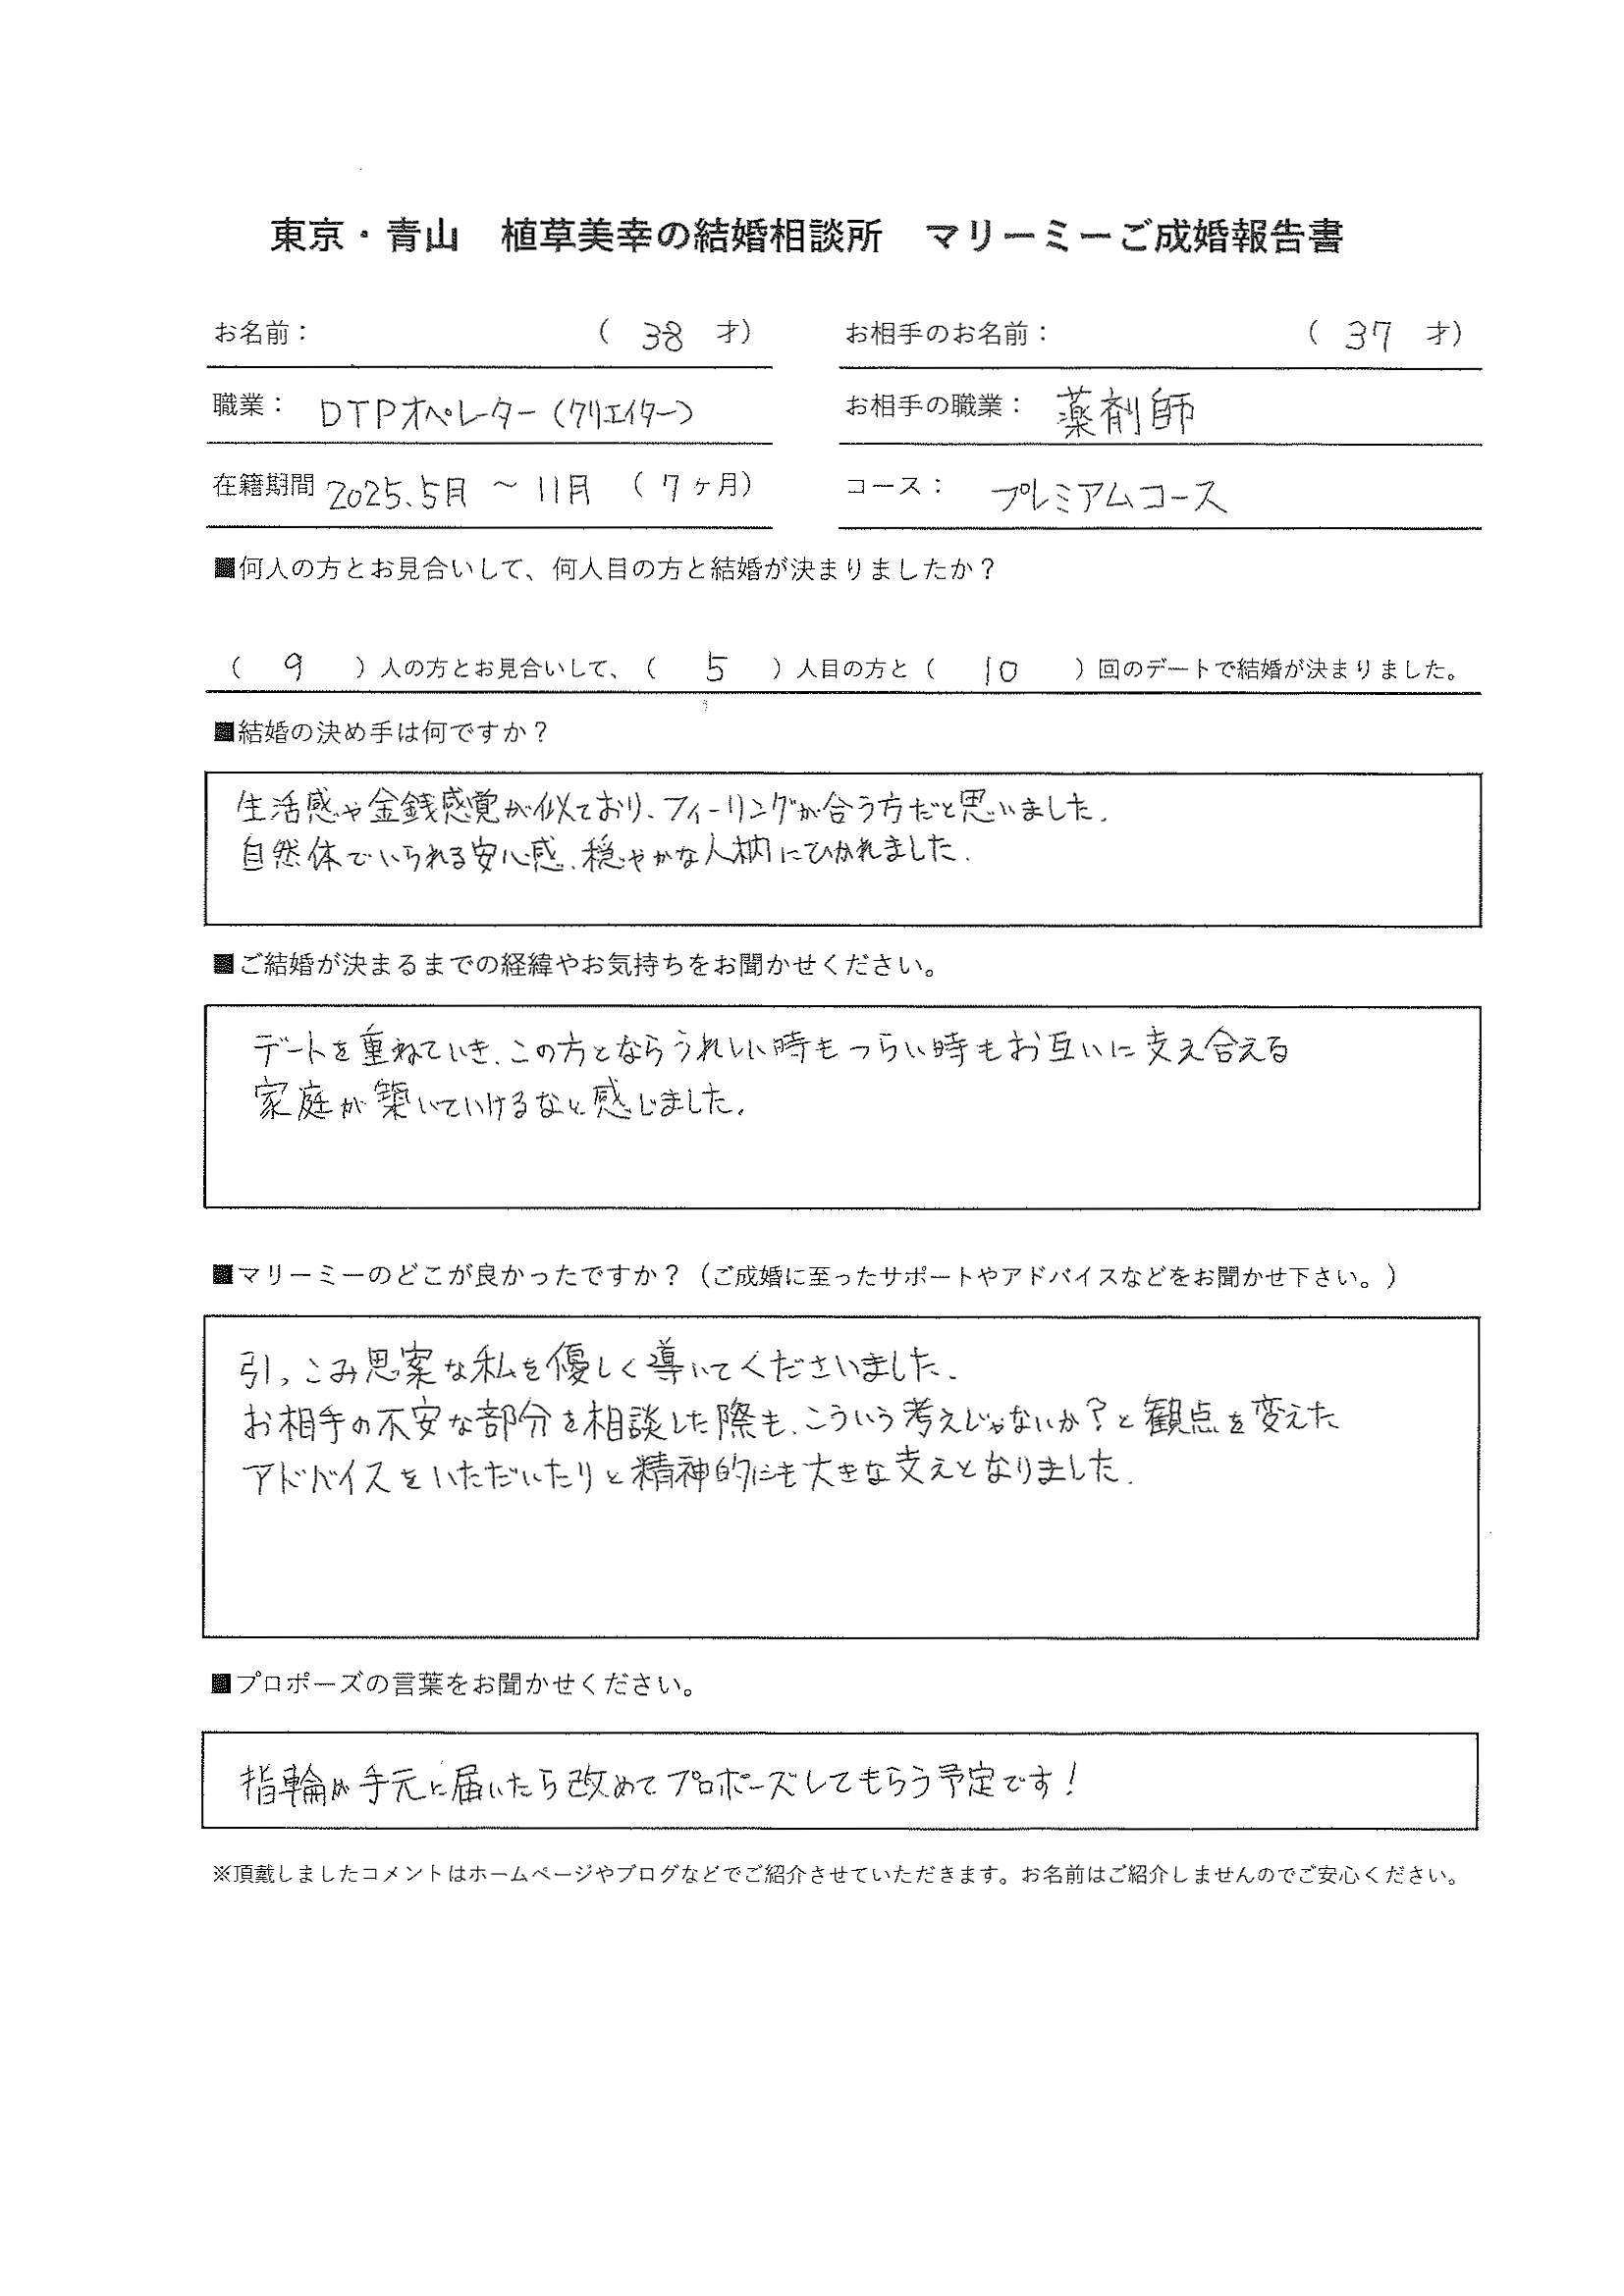 東京・青山　植草美幸の結婚相談所　マリーミーご成婚報告書
お名前：　（ 38 才）　お相手のお名前：　（ 37 才）
職業： DTPオペレーター（クリエイター）　お相手の職業： 薬剤師
在籍期間 2025.5月 ～ 11月 （ 7 ヶ月）　コース： プレミアムコース
■何人の方とお見合いして、何人目の方と結婚が決まりましたか？
（ 9 ）人の方とお見合いして、（ 5 ）人目の方と（ 10 ）回のデートで結婚が決まりました。
■結婚の決め手は何ですか？
生活感や金銭感覚が似ており、フィーリングが合う方だと思いました。
自然体でいられる安心感、穏やかな人柄にひかれました。
■ご結婚が決まるまでの経緯やお気持ちをお聞かせください。
デートを重ねていき、この方とならうれしい時もつらい時もお互いに支え合える
家庭が築いていけるなと感じました。
■マリーミーのどこが良かったですか？（ご成婚に至ったサポートやアドバイスなどをお聞かせ下さい。）
引っこみ思案な私を優しく導いてくださいました。
お相手の不安な部分を相談した際も、こういう考えじゃないか？と観点を変えた
アドバイスをいただいたりと精神的にも大きな支えとなりました。
■プロポーズの言葉をお聞かせください。
指輪が手元に届いたら改めてプロポーズしてもらう予定です！
※頂戴しましたコメントはホームページやブログなどでご紹介させていただきます。お名前はご紹介しませんのでご安心ください。